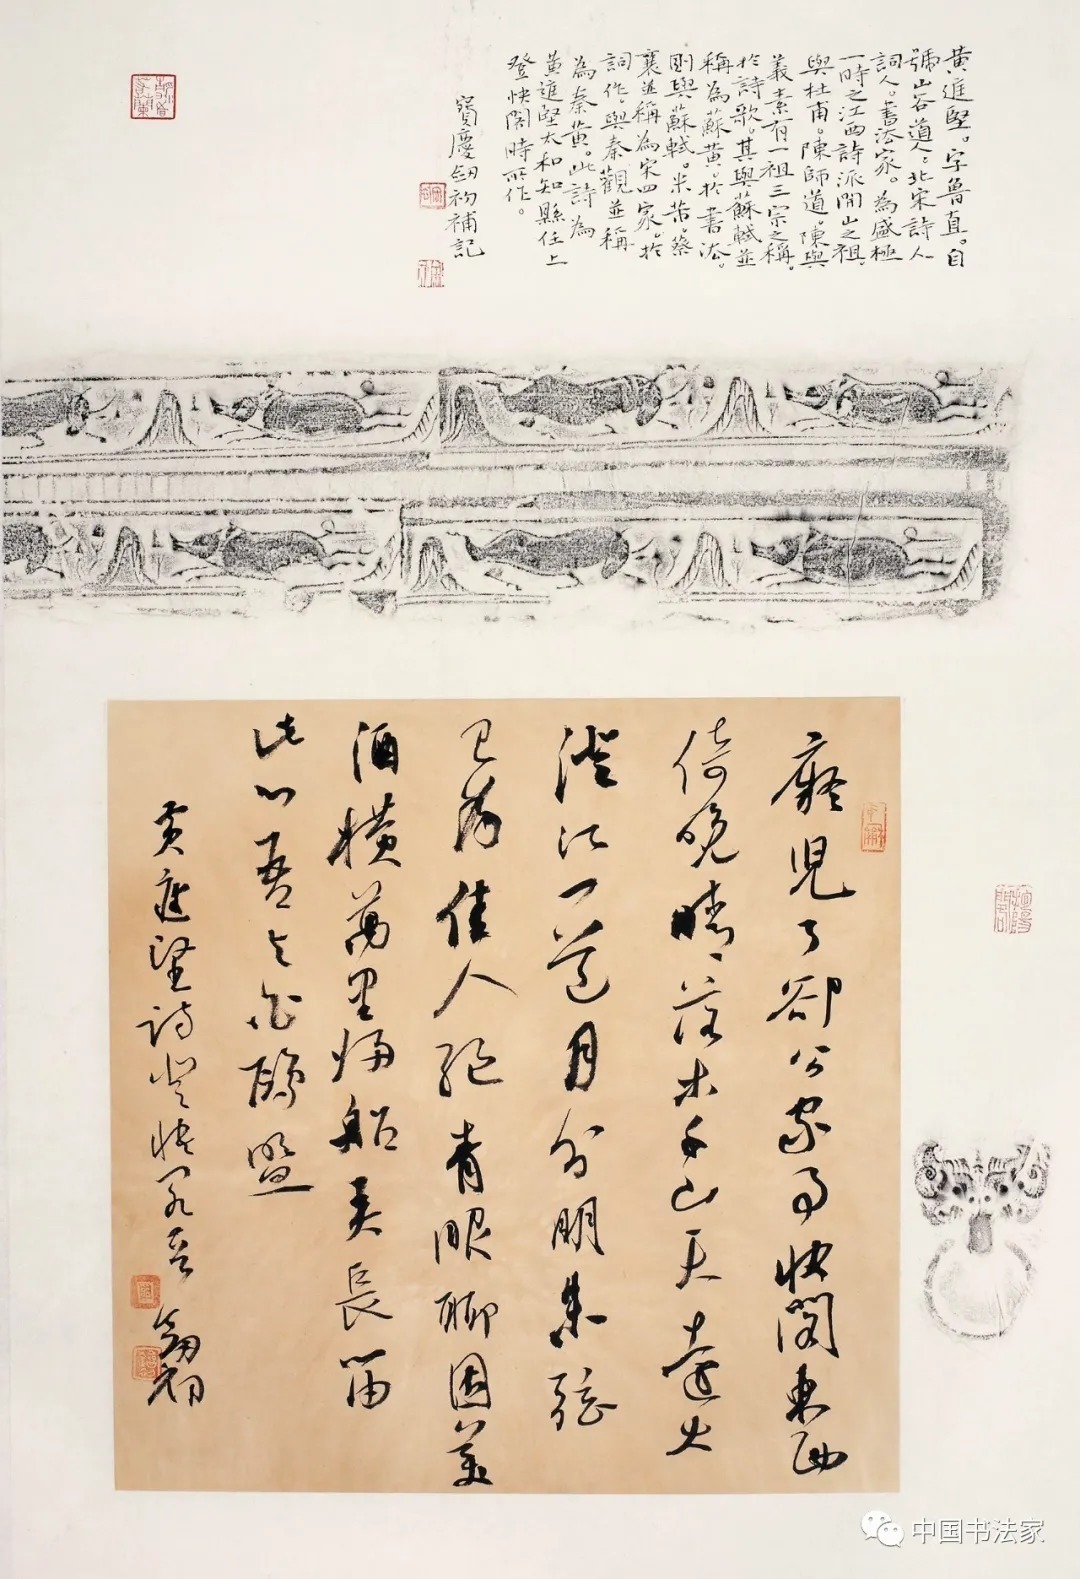 黄庭堅。字魯直。自
號山谷道人。北宋詩人
詞人。書法家。為盛極
一時之江西詩派開山之祖。
與杜甫。陳師道。陳與
義素有一祖三宗之稱。
於詩歌。其與蘇軾並
稱為蘇黄。於書法。
則與蘇軾。米芾。蔡
襄並稱為宋四家。於
詞作。與秦觀並稱
為秦黄。此詩為
黄庭堅太和知縣任上
登快閣時所作。
寶慶初補記
癡兒了卻公家事快閣東西
倚晚晴落木千山天遠大
澄江一道月分明朱弦
已為佳人絕青眼聊因美
酒橫萬里歸船弄長笛
此心吾與白鷗盟
黄庭堅詩登快閣 初
中国书法家